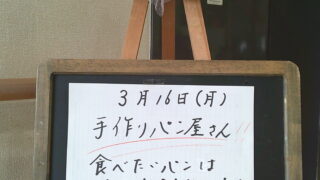 3月16日(月)
手作りパン屋さん!!
食べたいパンは